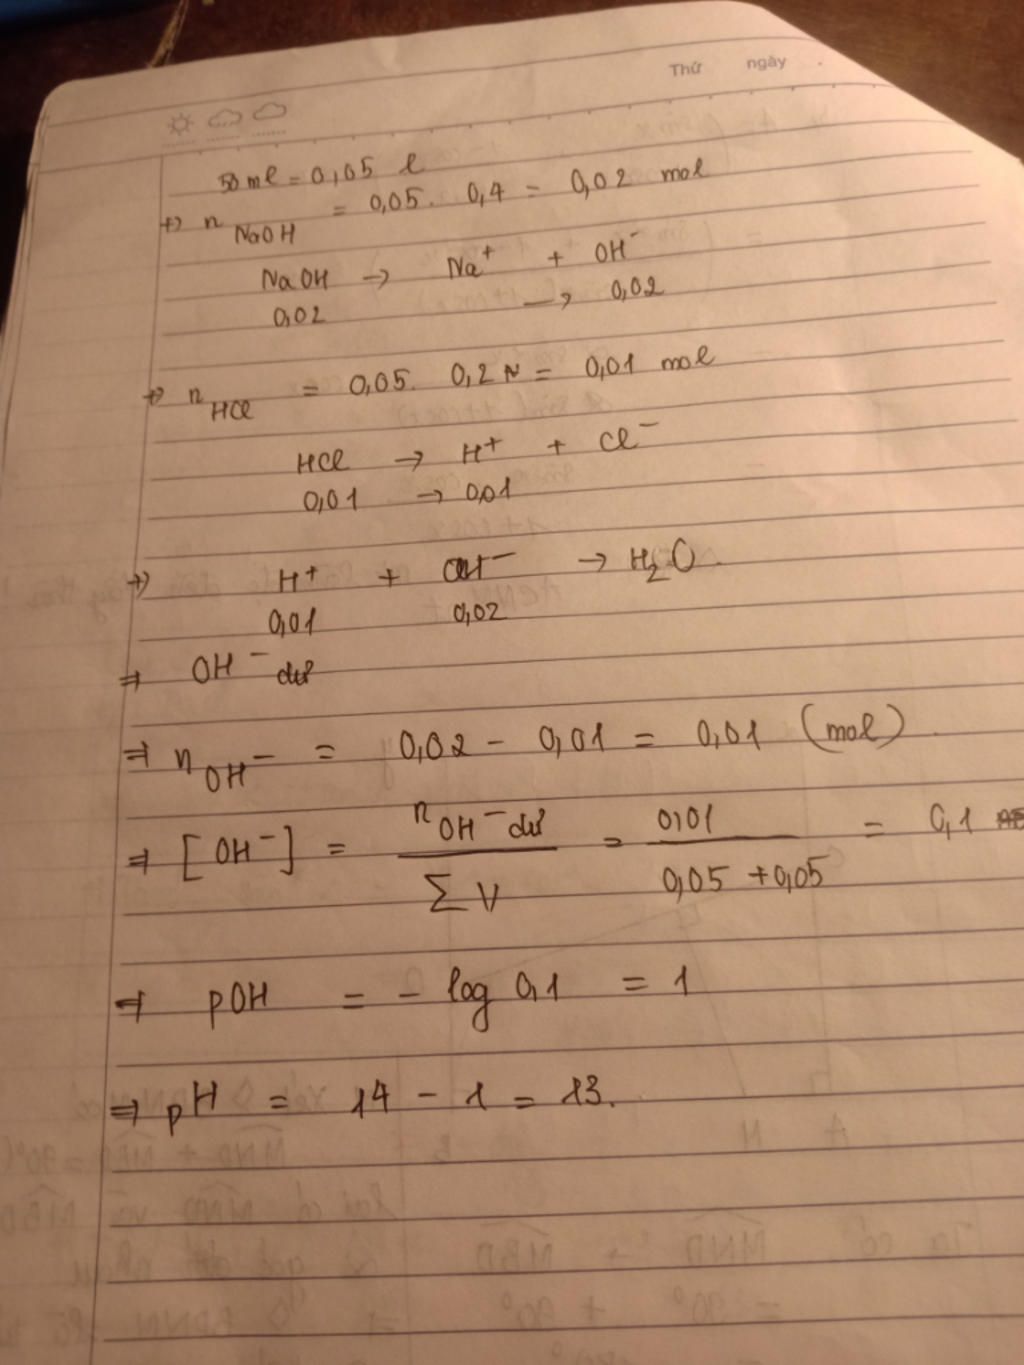 Thứ ngày
50 ml = 0,05 l
=> n NaOH = 0,05. 0,4 = 0,02 mol
NaOH → Na⁺ + OH⁻
0,02 → 0,02
=> n HCl = 0,05. 0,2 = 0,01 mol
HCl → H⁺ + Cl⁻
0,01 → 0,01
=> H⁺ + OH⁻ → H₂O.
0,01 0,02
=> OH⁻ dư
=> n OH⁻ = 0,02 - 0,01 = 0,01 (mol)
=> [OH⁻] = n OH⁻ dư / Σ V = 0,01 / 0,05 + 0,05 = 0,1
=> pOH = - log 0,1 = 1
=> pH = 14 - 1 = 13.